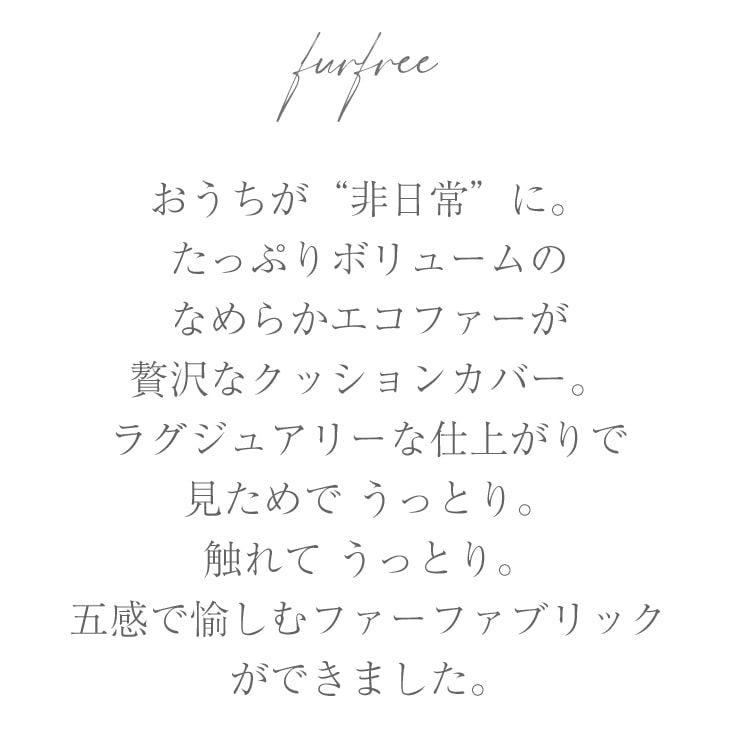 furfree
おうちが“非日常”に。
たっぷりボリュームの
なめらかエコファーが
贅沢なクッションカバー。
ラグジュアリーな仕上がりで
見ためで うっとり。
触れて うっとり。
五感で愉しむファーファブリック
ができました。